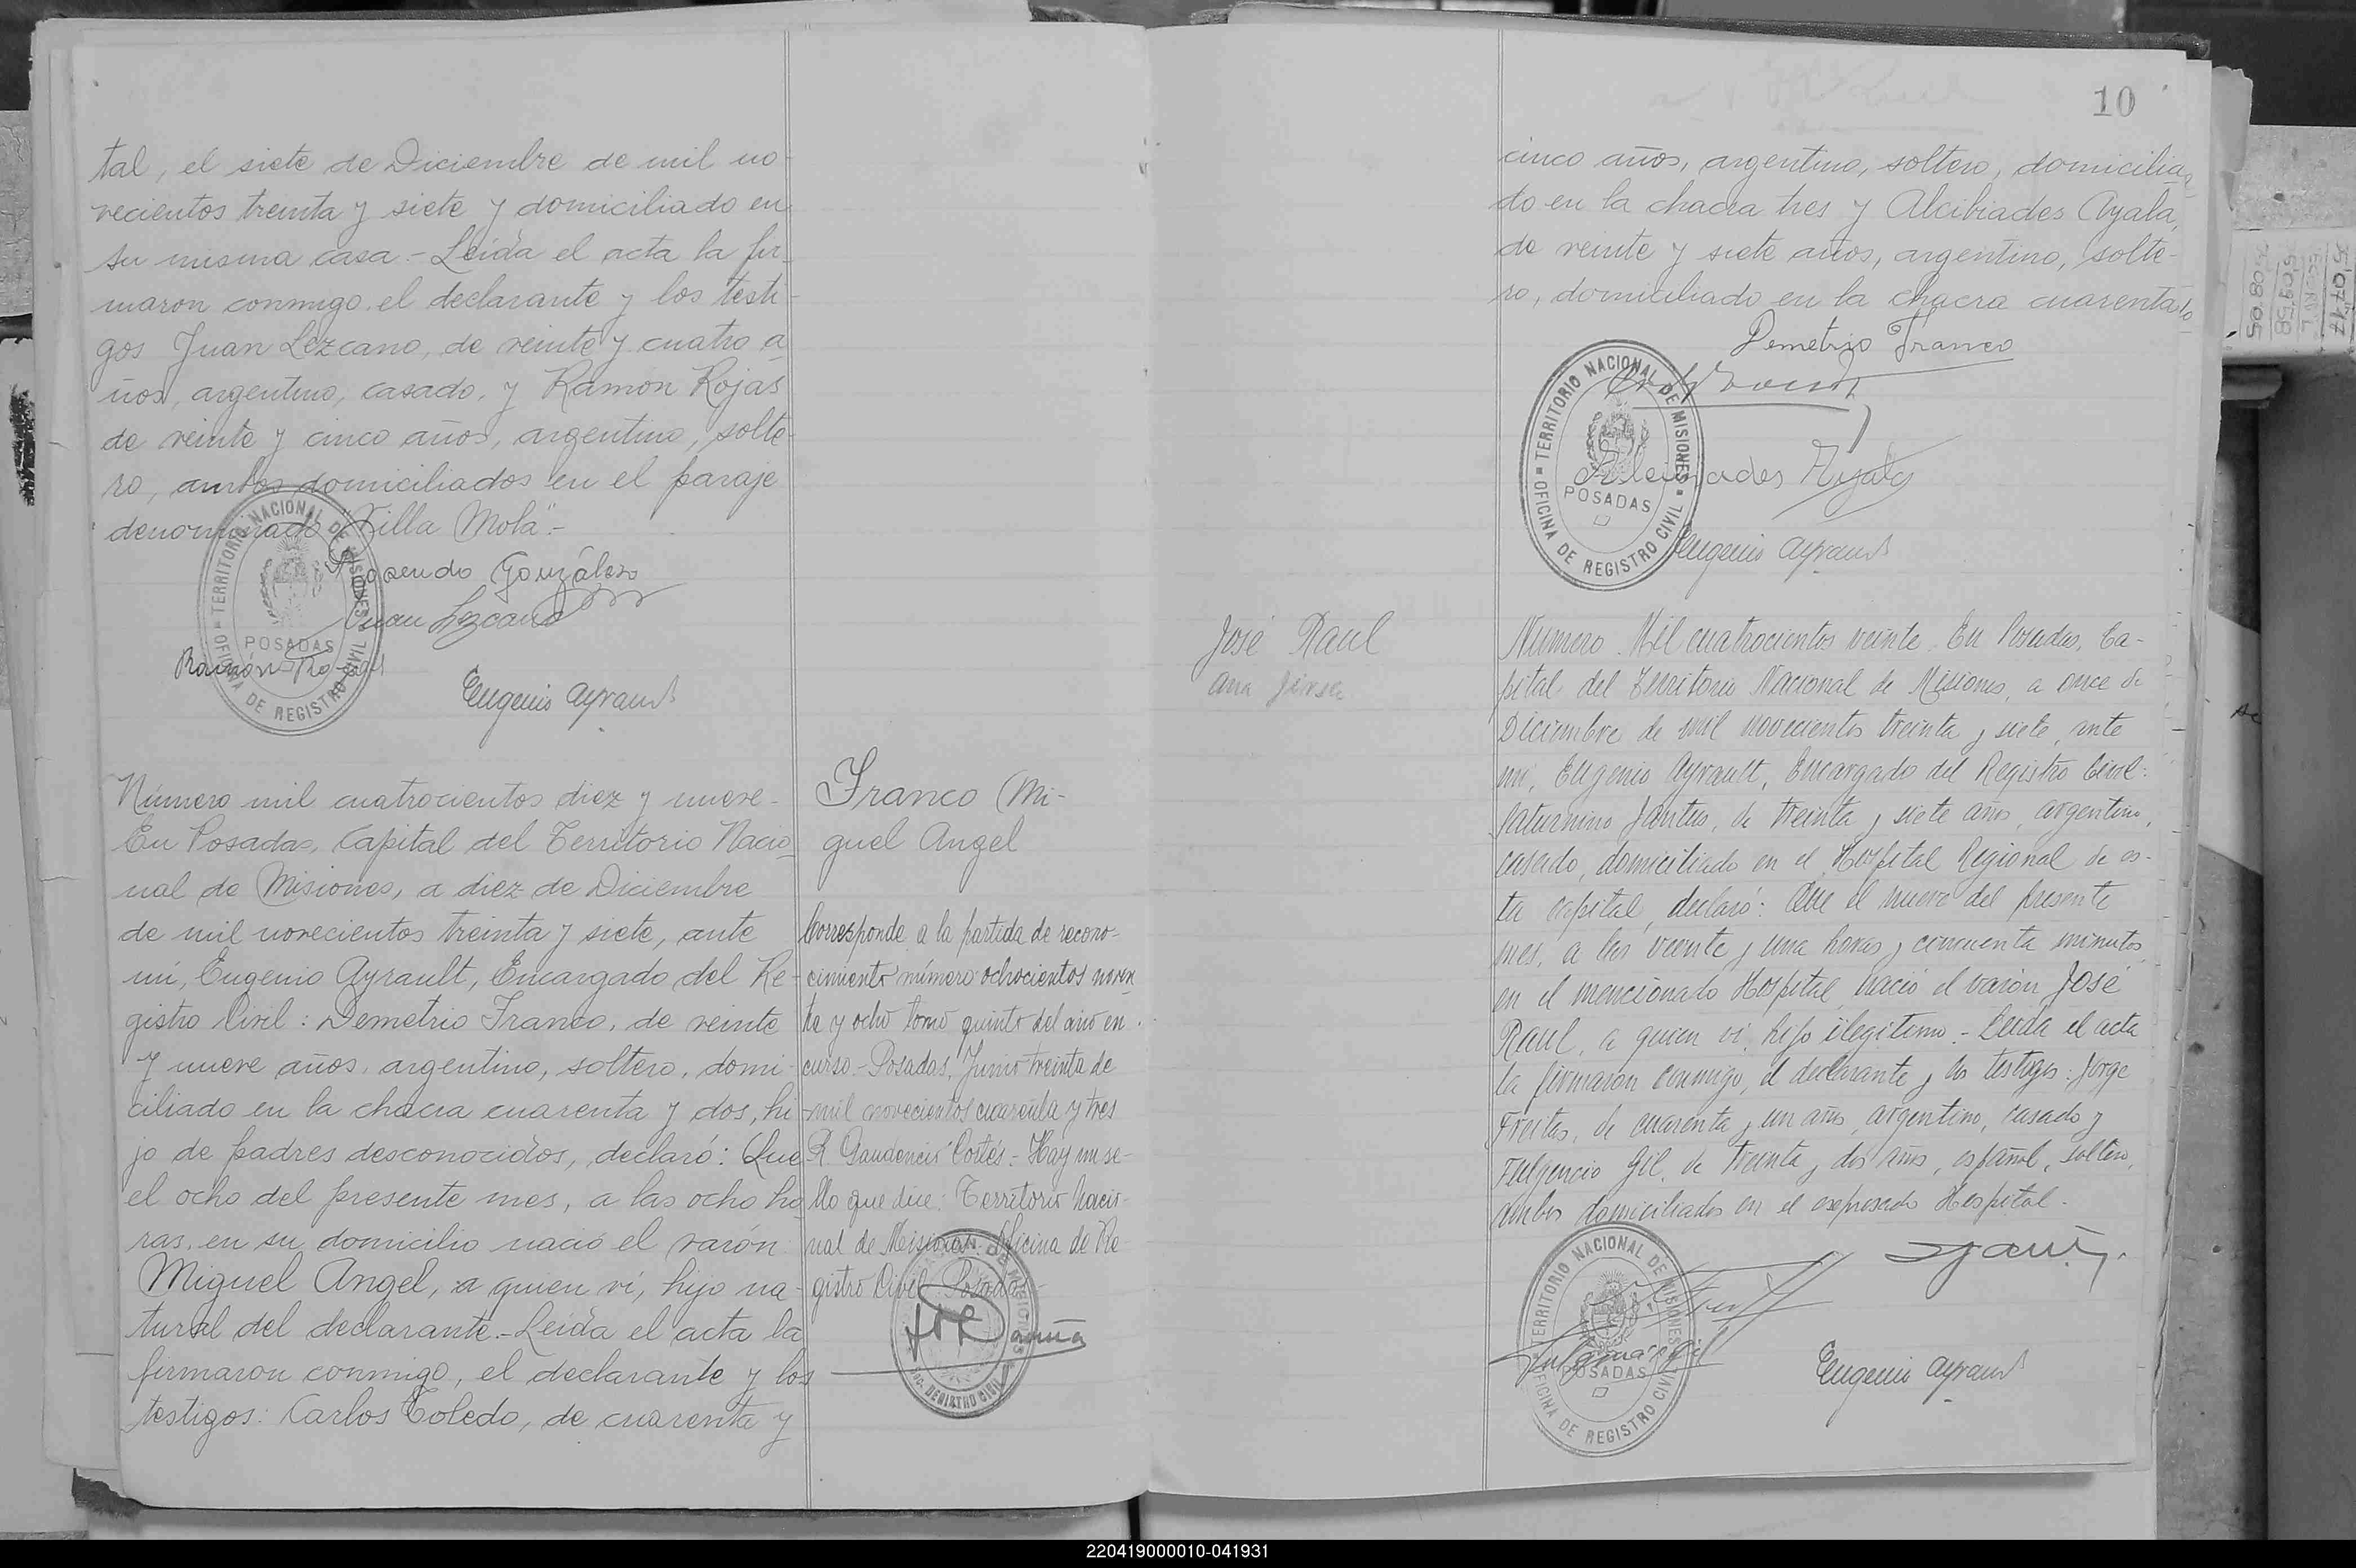 tal, el siete de Diciembre de mil no-
vecientos treinta y siete y domiciliado en
su misma casa.- Leida el acta la fir-
maron conmigo el declarante y los testi-
gos Juan Lezcano, de veinte y cuatro a
ños, argentino, casado, y Ramon Rojas
de veinte y cinco años, argentino, solte-
ro, ambos domiciliados en el paraje
denominado "Villa Mola".-
Rosendo González
Juan Lezcano
Ramón Rojas
Eugenio Ayrault
TERRITORIO NACIONAL DE MISIONES
POSADAS
OFICINA DE REGISTRO CIVIL
Número mil cuatrocientos diez y nueve-
En Posadas, Capital del Territorio Nacio-
nal de Misiones, a diez de Diciembre
de mil novecientos treinta y siete, ante
mi, Eugenio Ayrault, Encargado del Re-
gistro Civil: Demetrio Franco, de veinte
y nueve años, argentino, soltero, domi-
ciliado en la chacra cuarenta y dos, hi-
jo de padres desconocidos, declaró: Que
el ocho del presente mes, a las ocho ho-
ras, en su domicilio nació el varón
Miguel Angel, a quien vi, hijo na-
tural del declarante.- Leida el acta la
firmaron conmigo, el declarante y los
testigos: Carlos Toledo, de cuarenta y
Franco (Mi-
guel Angel
Corresponde a la partida de recono-
cimiento número ochocientos noven
ta y ocho tomo quinto del año en
curso.- Posadas, Junio treinta de
mil novecientos cuarenta y tres
R. Gaudencio Cortés.- Hay un se-
llo que dice: Territorio Nacio-
nal de Misiones. Oficina de Re-
gistro Civil. Posadas-
10
cinco años, argentino, soltero, domicilia-
do en la chacra tres y Alcibiades Ayala,
de veinte y siete años, argentino, solte-
ro, domiciliado en la chacra cuarenta
Demetrio Franco
Alcibiades Ayala
Eugenio Ayrault
TERRITORIO NACIONAL DE MISIONES
POSADAS
OFICINA DE REGISTRO CIVIL
José Raul
Ana
Número Mil cuatrocientos veinte. En Posadas, Ca-
pital del Territorio Nacional de Misiones, a once de
Diciembre de mil novecientos treinta y siete, ante
mi, Eugenio Ayrault, Encargado del Registro Civil:
Saturnino de treinta y siete años, argentino,
casado, domiciliado en el Hospital Regional de es-
ta capital, declaró: Que el nueve del presente
mes, a las veinte y una horas y cincuenta minutos
en el mencionado Hospital nació el varón José
Raul, a quien vi, hijo ilegitimo.- Leida el acta
la firmaron conmigo, el declarante y los testigos: Jorge
Freitas, de cuarenta y un años, argentino, casado y
Fulgencio Gil, de treinta y dos años, español, soltero,
ambos domiciliados en el expresado Hospital.
Fulgencio Gil
Eugenio Ayrault
TERRITORIO NACIONAL DE MISIONES
POSADAS
OFICINA DE REGISTRO CIVIL
220419000010-041931